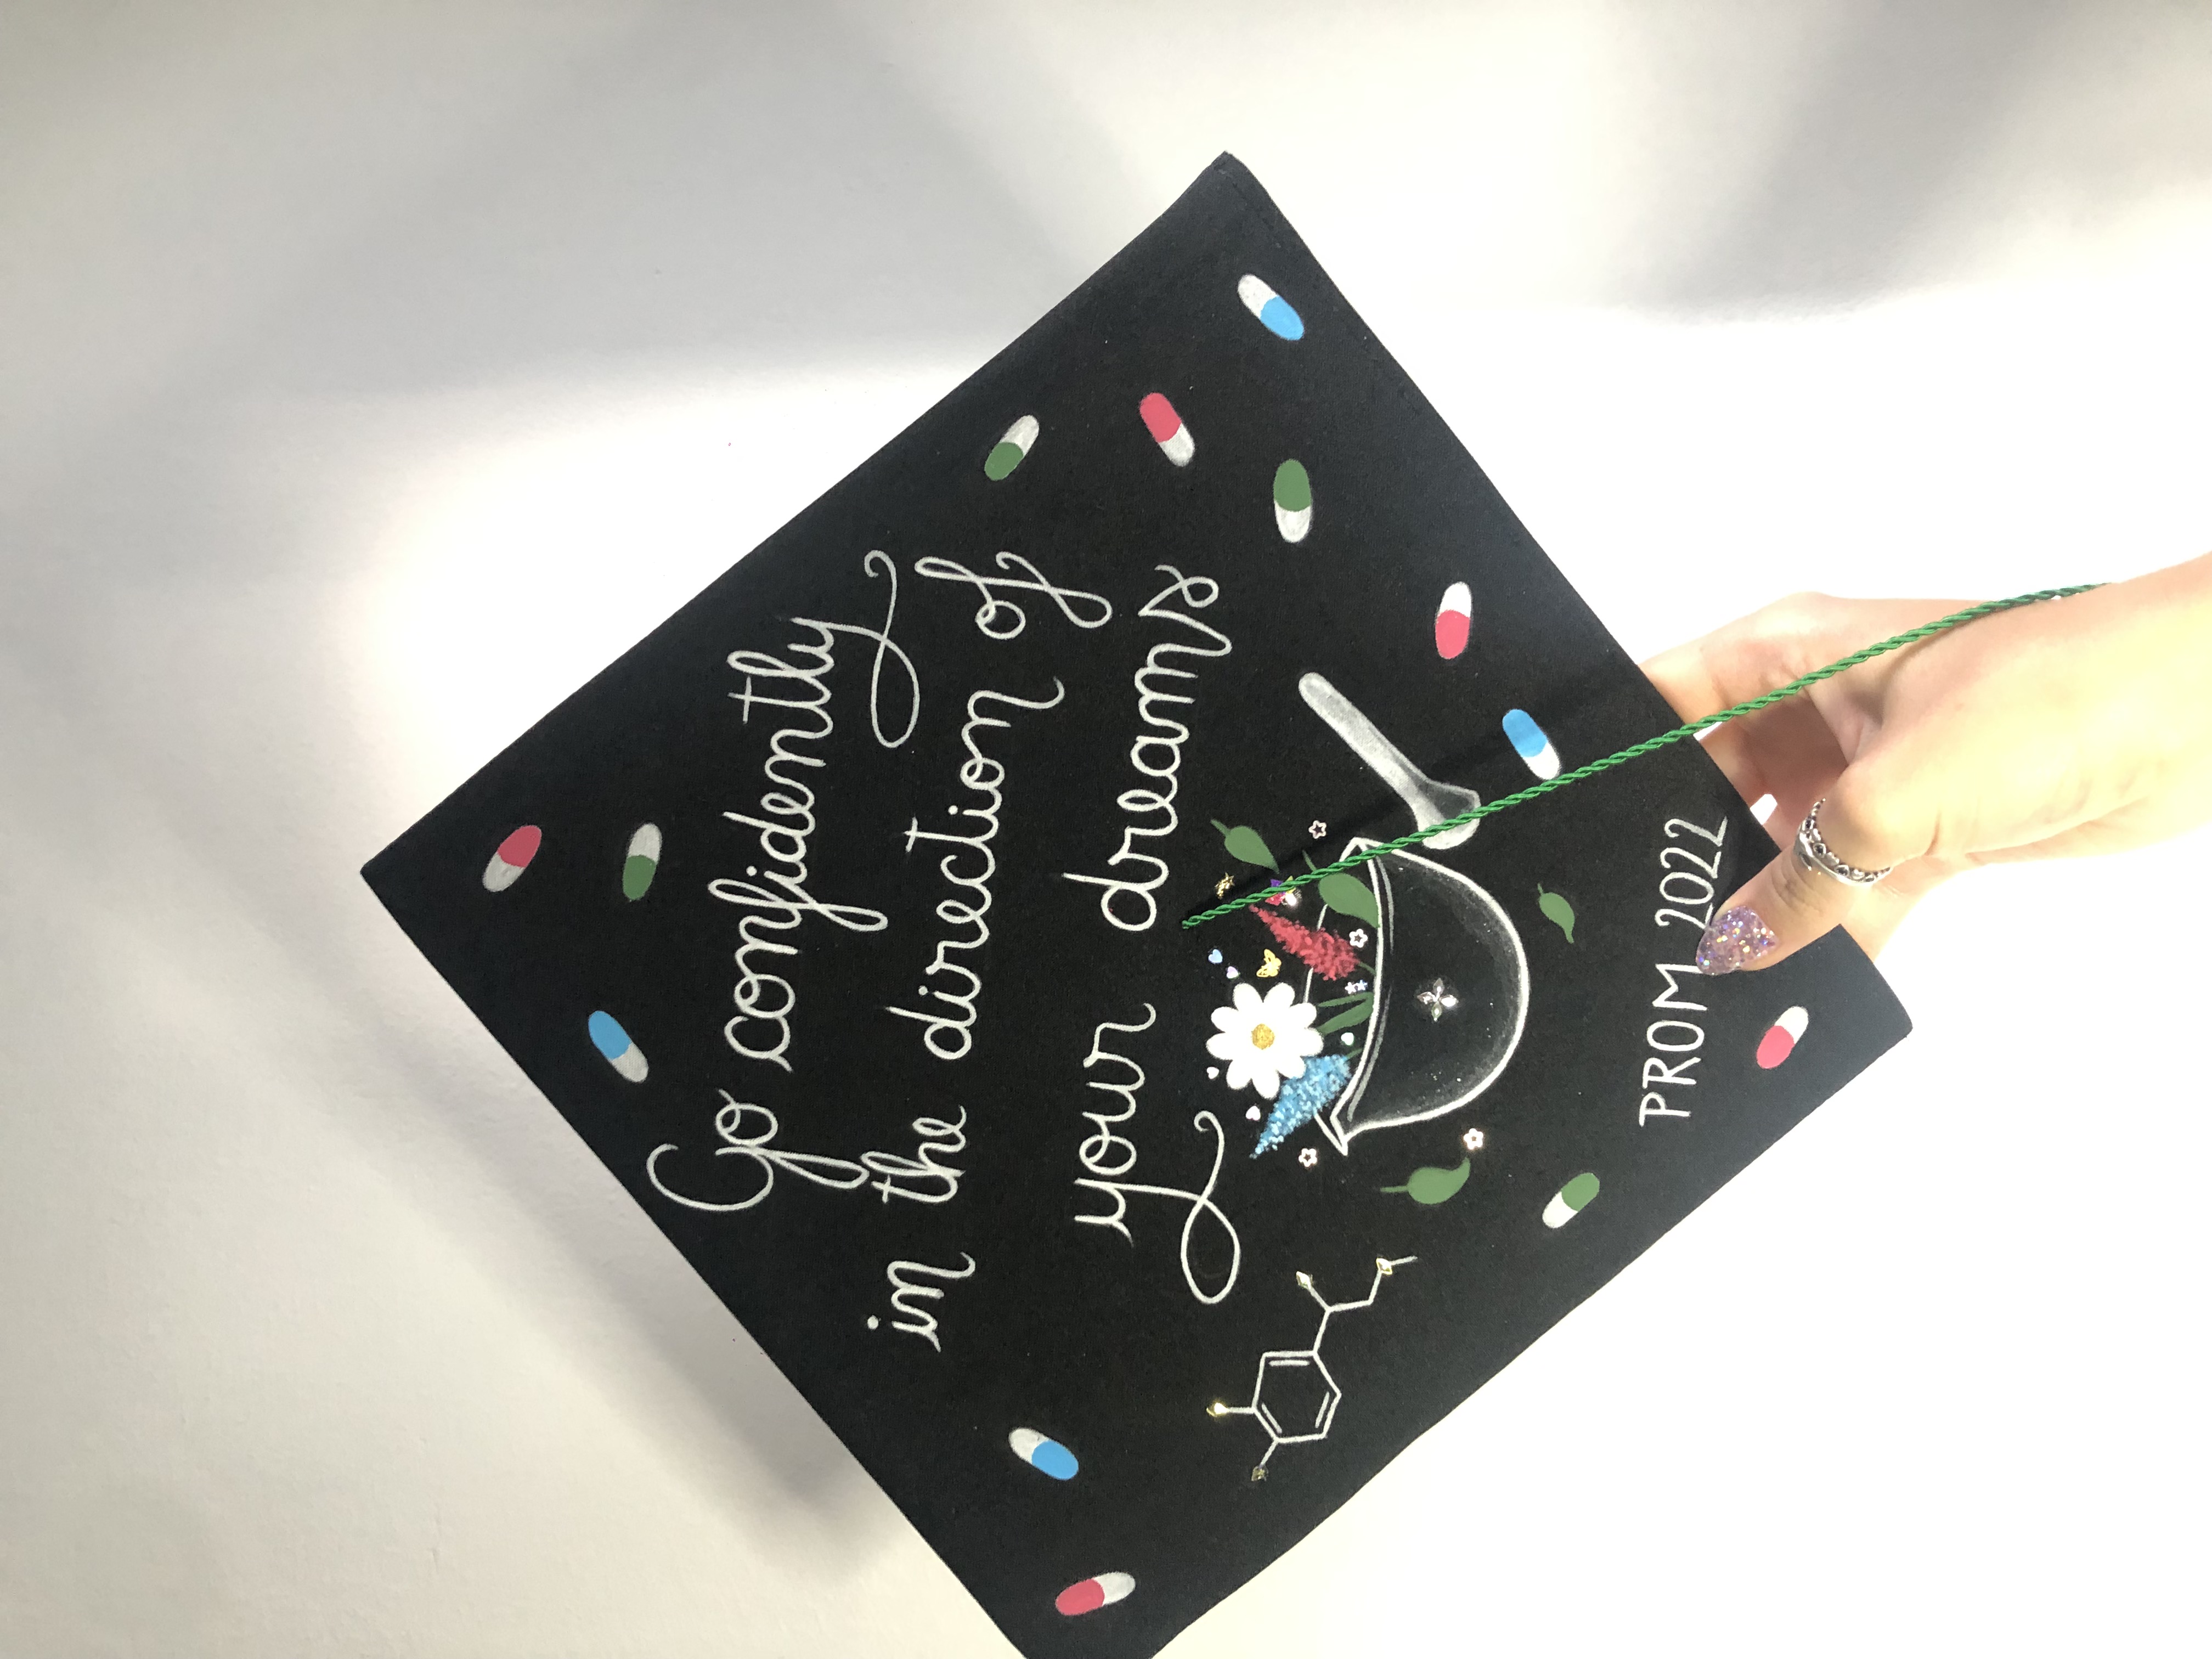 Go confidently
in the direction of
your dreams
PROM 2022